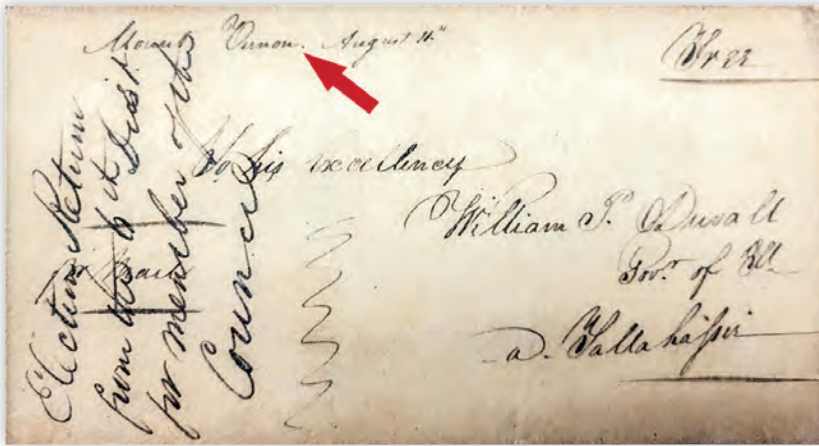 Mount Vernon. August 11"
Free
To his excellency
William P. Duvall
Govr. of Fl.
a. Tallahassie
pr Mail
Election Return
from the Dist.
for member of the
Council